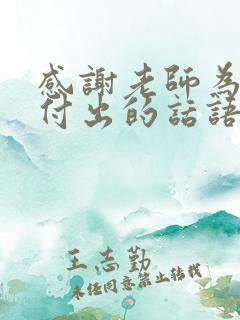 感謝老師為
付出的話語
王志勤
未经同意禁止转载